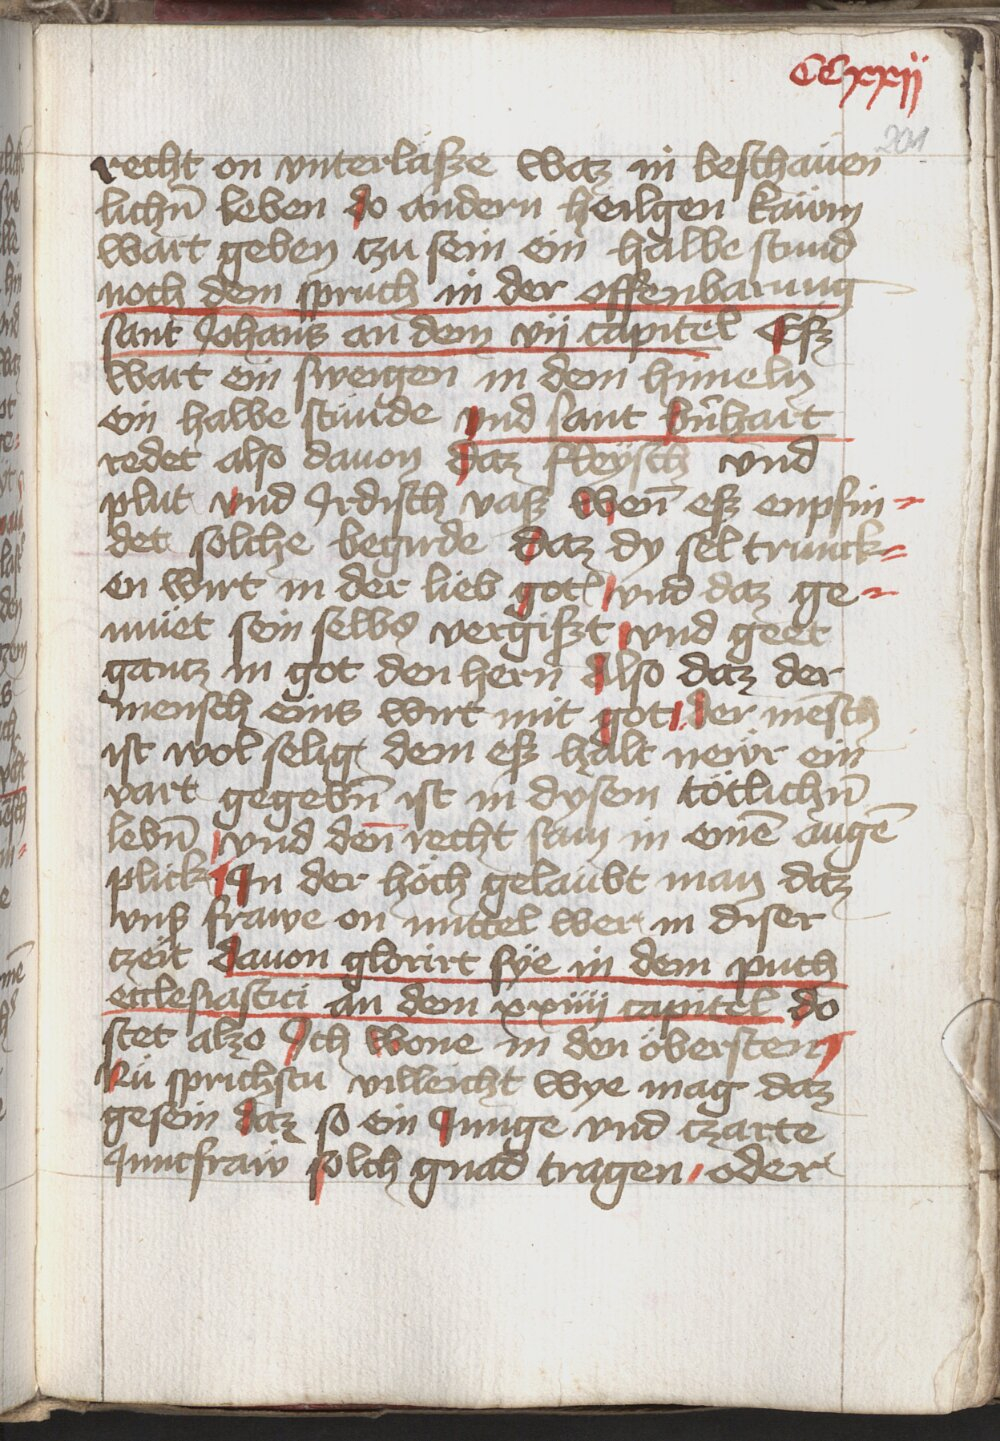 CCxxij
201
recht on vnterlasze waz in beschauen
lichn̄ leben do andern heilgen kawm
wart geben czu sein ein halbe stund
noch dem spruch in der offenbarung
sant Johans an dem vij capitel Esz
wart ein sweigen in dem himeln
ein halbe stunde vnd sant bn̄hart
redet also davon daz fleysch vnd
plut vnd Jrdisch vasz wen̄ esz enpfin=
det solche begirde daz dy sel trunck=
en wirt in der lieb gotz vnd daz ge=
müet sein selbs vergiszt vnd geet
gantz in got den hern̄ Also daz der
mensch eins wirt mit got der mēsch
ist wol selig dem esz halt newr ein
vart gegebn̄ ist in dysem tötlichn̄
lebn̄ vnd den̄ recht sam in einē augē
plick Jn der höch gelaubt man daz
vnß frawe on mittel wer in diser
czeit davon glorirt sye in dem puch
ecclesiastici an dem xxiiij capitel do
stet alzo Jch wone in den öbersten
Nu sprichstu villeicht wye mag daz
gesein daz so ein Junge vnd czarte
Junckfraw solch gnad tragen oder